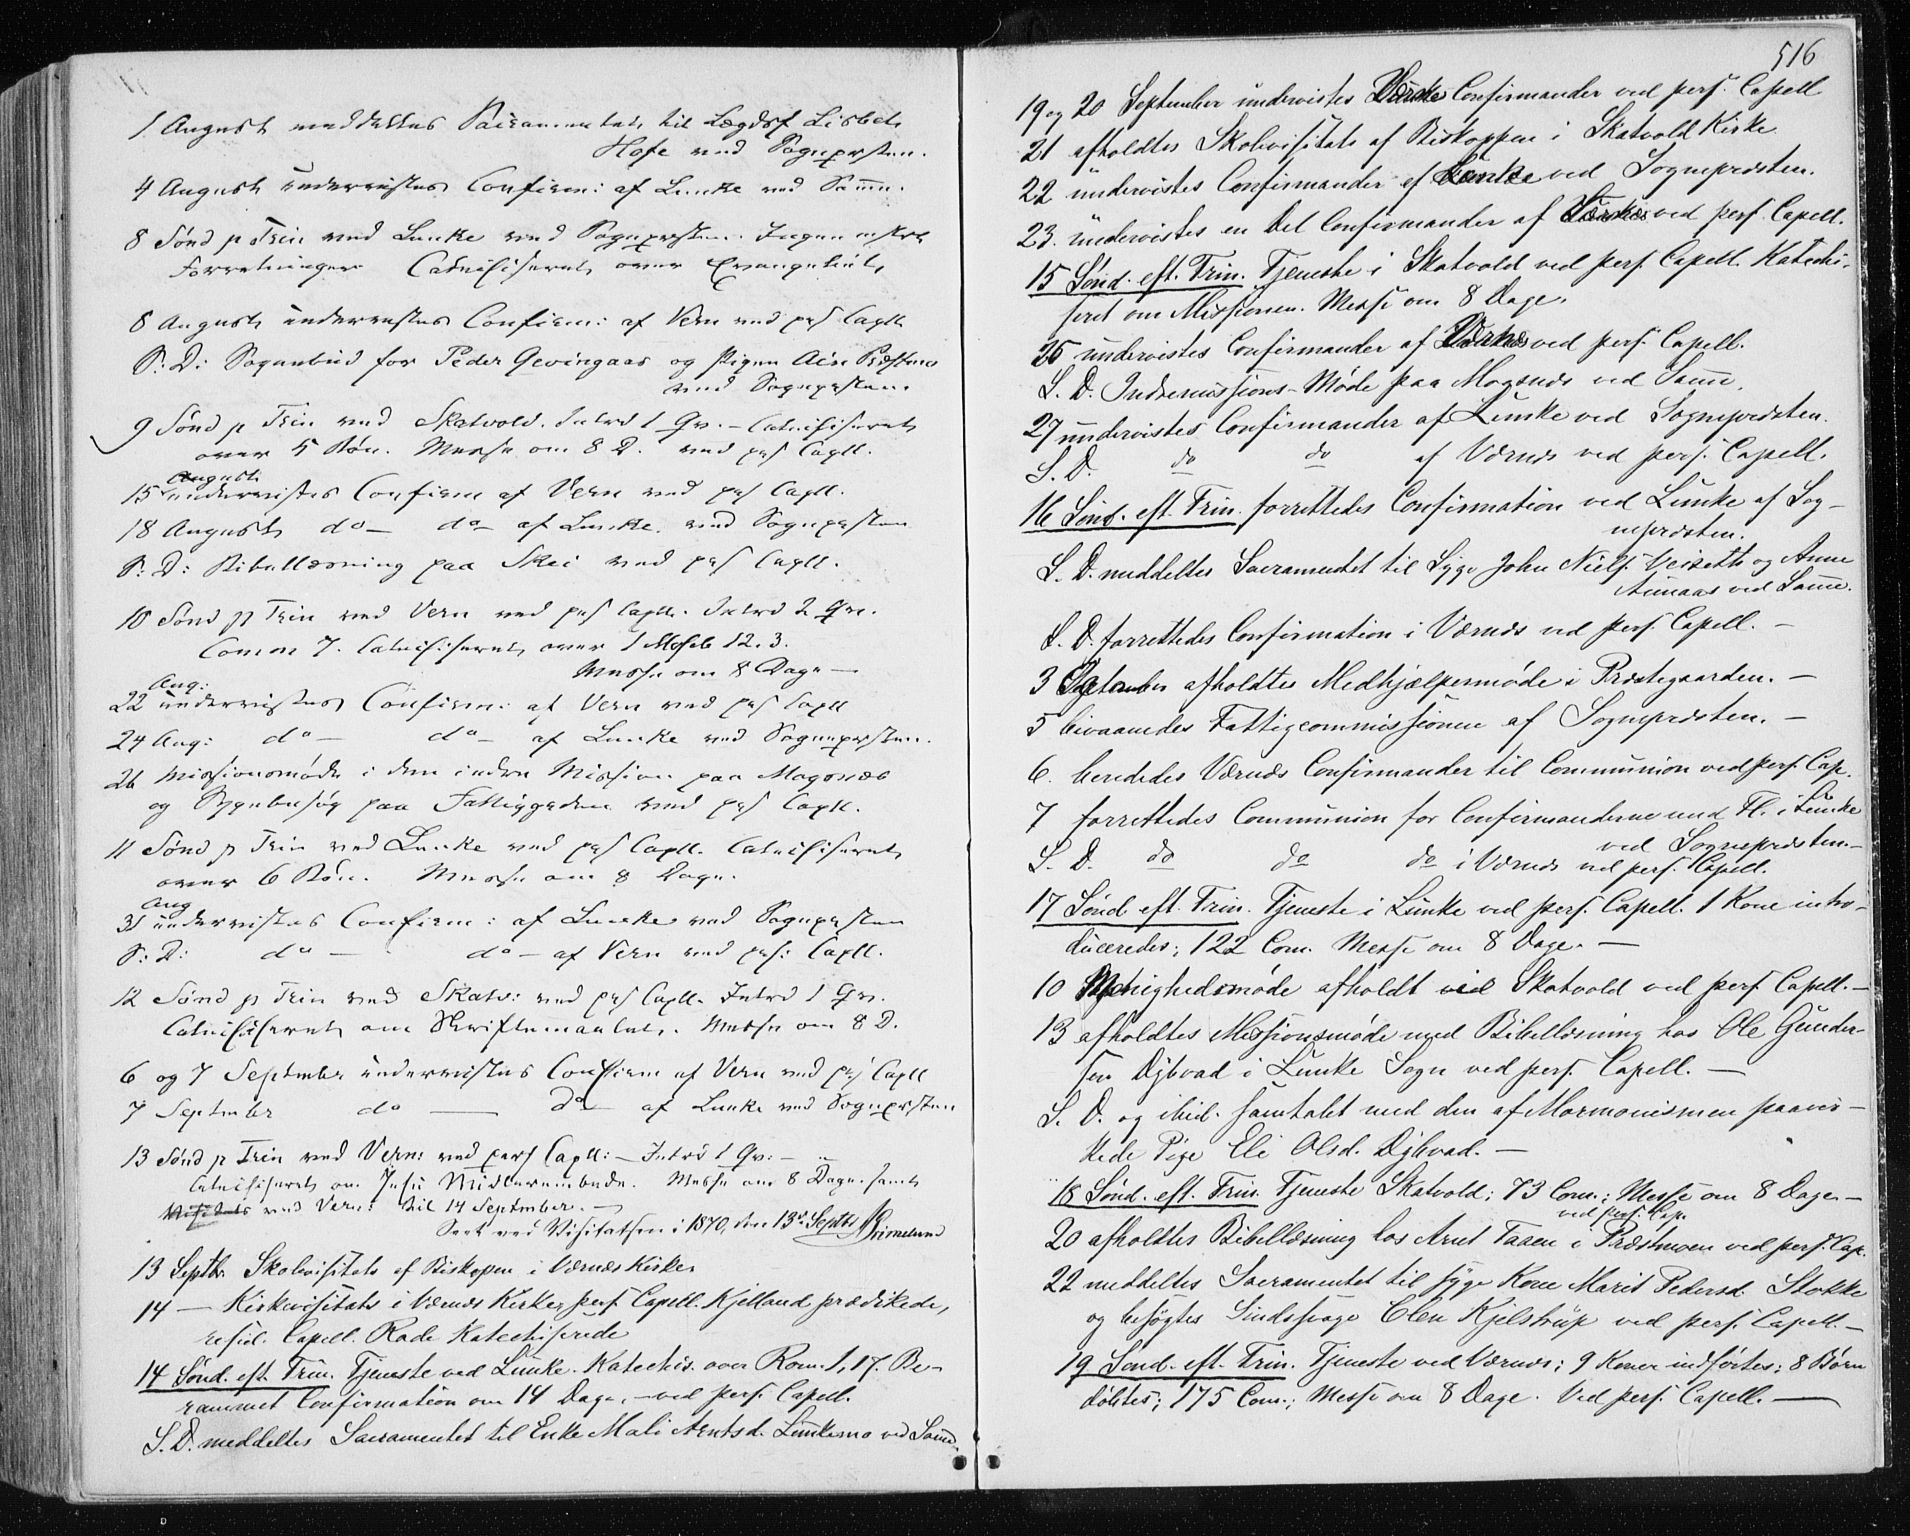 1 August meddeltes Sacramentet til Lægdsf Lisbet
Hofe ved Sognepresten.
4 August underviistes Confirm: af Lunke ved Samme.
8 Sønd p Trin ved Lunke ved Sognepresten. Ingen
Forretninger Catechiseret over Evangeliet
8 August underviistes Confirm: af Vern ved pers Capll
S: D: Sognebud for Peder Gevingaas og Pigen
ved Sognepresten.
9 Sønd p Trin ved Skatvold. Introd 1 Qv. – Catechiseret
over 5 Bøn. Messe om 8 D. ved pers Capll.
August
15 underviistes Confirm af Vern ved pers Capll.
18 August do – do – af Lunke ved Sognepresten
S: D: Bibellæsning paa Skei ved pers Capll.
10 Sønd p Trin ved Vern ved pers Capll. Introd 2 Qv.
Comm 7. Catechiseret over 1 Moseb 12.3.
Messe om 8 Dage –
Aug:
22 underviistes Confirm: af Vern ved pers Capll
24 Aug: do – do – af Lunke ved Sognepresten.
26 Missionsmøde i den indre Mission paa Magsnæs
og Sygebesøg paa Fattiggaden ved pers Capll.
11 Sønd p Trin ved Lunke ved pers Capll. Catechiseret
over 6 Bøn. Messe om 8 Dage.
Aug
31 underviistes Confirm: af Lunke ved Sognepresten
S: D: do – do – af Vern ved pers: Capll.
12 Sønd p Trin ved Skatv: ved pers Capll. Introd 1 Qv.
Catechiseret om Skriftemaalet. Messe om 8 D.
6 og 7 September underviistes Confirm af Vern ved pers Capll
7 September do – do – af Lunke ved Sognepresten
13 Sønd p Trin ved Vern: ved pers Capll: – Introd 1 Qv: –
Catechiseret om Jesu Midlerembede. Messe om 8 Dage samt
Visitats ved Vern: til 14 September. –
Seet ved Visitatsen i 1870, den 13de Septbr Grimelund
13 Septbr. Skolevisitats af Biskopen i Værnes Kirke
14 — Kirkevisitats i Værnes Kirke, pers. Capell. Kjelland prædikede,
resid. Capell. Rode Katechiserede
14 Sønd. eft. Trin. Tjeneste ved Lunke. Katechis. over Rom. 1, 17. Be-
rammet Confirmation om 14 Dage, – ved pers. Capell.
S. D. meddeltes Sacramentet til Enke Mali Arntsd. Lunkemo ved Samme.
516
19 og 20 September undervistes Confirmander ved pers. Capell
21 afholdtes Skolevisitats af Biskoppen i Skatvold Kirke.
22 undervistes Confirmander af Lunke ved Sognepræsten.
23. undervistes en Del Confirmander af Værnes ved pers. Capell.
15 Sønd. eft. Trin. Tjeneste i Skatvold ved pers. Capell. Katechi-
seret om Missionen. Messe om 8 Dage.
26 undervistes Confirmander af Værnes ved pers. Capell.
S. D. Indremissions-Møde paa Magsnes ved Samme.
27 undervistes Confirmander af Lunke ved Sognepræsten.
S. D. do do af Værnes ved pers. Capell.
16 Sønd. eft. Trin. forrettedes Confirmation ved Lunke af Sog-
nepræsten.
S. D. meddeltes Sacramentet til Syge John Niels. Veiseth og Anne
Aunaas ved Samme.
S. D. forrettedes Confirmation i Værnes ved pers. Capell. –
3 October afholdtes Medhjælpermøde i Præstegaarden. –
5 bivaanedes Fattigcommissionen af Sognepræsten. –
6. beredtes Værnes Confirmander til Communion ved pers. Cap.
7 forrettedes Communion for Confirmanderne med Fl. i Lunke
ved Sognepræsten. –
S. D. do do do i Værnes ved pers. Capell.
17 Sønd. eft. Trin. Tjeneste i Lunke ved pers. Capell. 1 Kone intro-
duceredes; 122 Com. Messe om 8 Dage. –
10 Menighedsmøde afholdt ved Skatvold ved pers. Capell. –
13 afholdtes Missionsmøde med Bibellæsning hos Ole Gunder-
sen Dybvad i Lunke Sogn ved pers. Capell. –
S. D. og ibid. samtalet med den af Mormonismen paavir-
kede Pige Eli Olsd. Dybvad. –
18 Sønd. eft. Trin. Tjeneste Skatvold; 73 Com.; Messe om 8 Dage –
ved pers. Cap.
20 afholdtes Bibellæsning hos Arnt Taaen i Præstmoen ved pers. Cap.
22 meddeltes Sacramentet til syge Kone Marit Pedersd. Stokke
og besøgtes Sindssvage Elen Kjelstrup ved pers. Capell. –
19 Sønd. eft. Trin. Tjeneste ved Værnes; 9 Koner indførtes; 8 Børn
døbtes; 175 Com.; Messe om 8 Dage. Ved pers. Capell. –